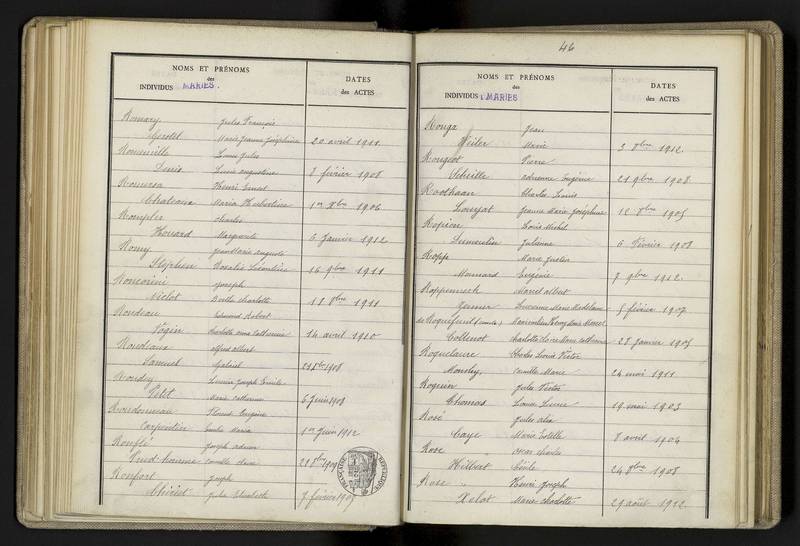 NOMS ET PRÉNOMS
des
INDIVIDUS MARIES.
DATES
des ACTES
Romary Jules François
Gerotel Marie Jeanne Joséphine 20 avril 1911
Romenville Louis Jules
Denis Louise augustine 8 février 1908
Henri Ernest
Chateaux Maria Hubertine 1er 1906
Rompler Charles
Houard Marguerite 6 Janvier 1912
Romy Jean Marie auguste
Stephen Rosalie Léontine 16 9bre 1911
Roncorini Joseph
Niclot Berthe Charlotte 18 1911
Rondeau Edmond Robert
Vogin Charlotte anna Catherine 14 avril 1910
Rondeaux alfred albert
Samuel Gabriel 1908
Rondoy Lucien Joseph Emile
Petit Marie Catherine 6 Juin 1908
Rondonneau Florent Eugène
Carpentier Emilie Maria 1er Juin 1912
Ronflé Joseph adrien
Prud-homme Camille 1909
Ronfort Joseph
Jules Elisabeth 7 février 1907
46
NOMS ET PRÉNOMS
des
INDIVIDUS MARIES
DATES
des ACTES
Ronga Jean
Weiler Marie 3 1912
Rongeot Pierre
Schville adrienne Eugénie 21 9bre 1908
Roothaan Charles Louis
Louyat Jeanne Marie Joséphine 12 1905
Ropion Louis Michel
Dumontin Julienne 6 Février 1908
Ropp Marie Justin
Monnard Eugénie 7 9bre 1912
Roppenneck Marcel albert
Lucienne Marie Madeleine 5 février 1907
de Roquefeuil (comte) Maximilien Marcel
Collenot Charlotte Claire Marie Catherine 23 Janvier 1905
Roquelaure Charles Louis Victor
Camille Marie 24 mai 1911
Roquin Jules Victor
Thomas Louise Lucie 19 mai 1903
Rosé Jules alix
Caye Marie Estelle 8 avril 1904
Rose Oscar Charles
Hilbert Cécile 24 1908
Rose Henri Joseph
Xolot Marie Charlotte 29 août 1912